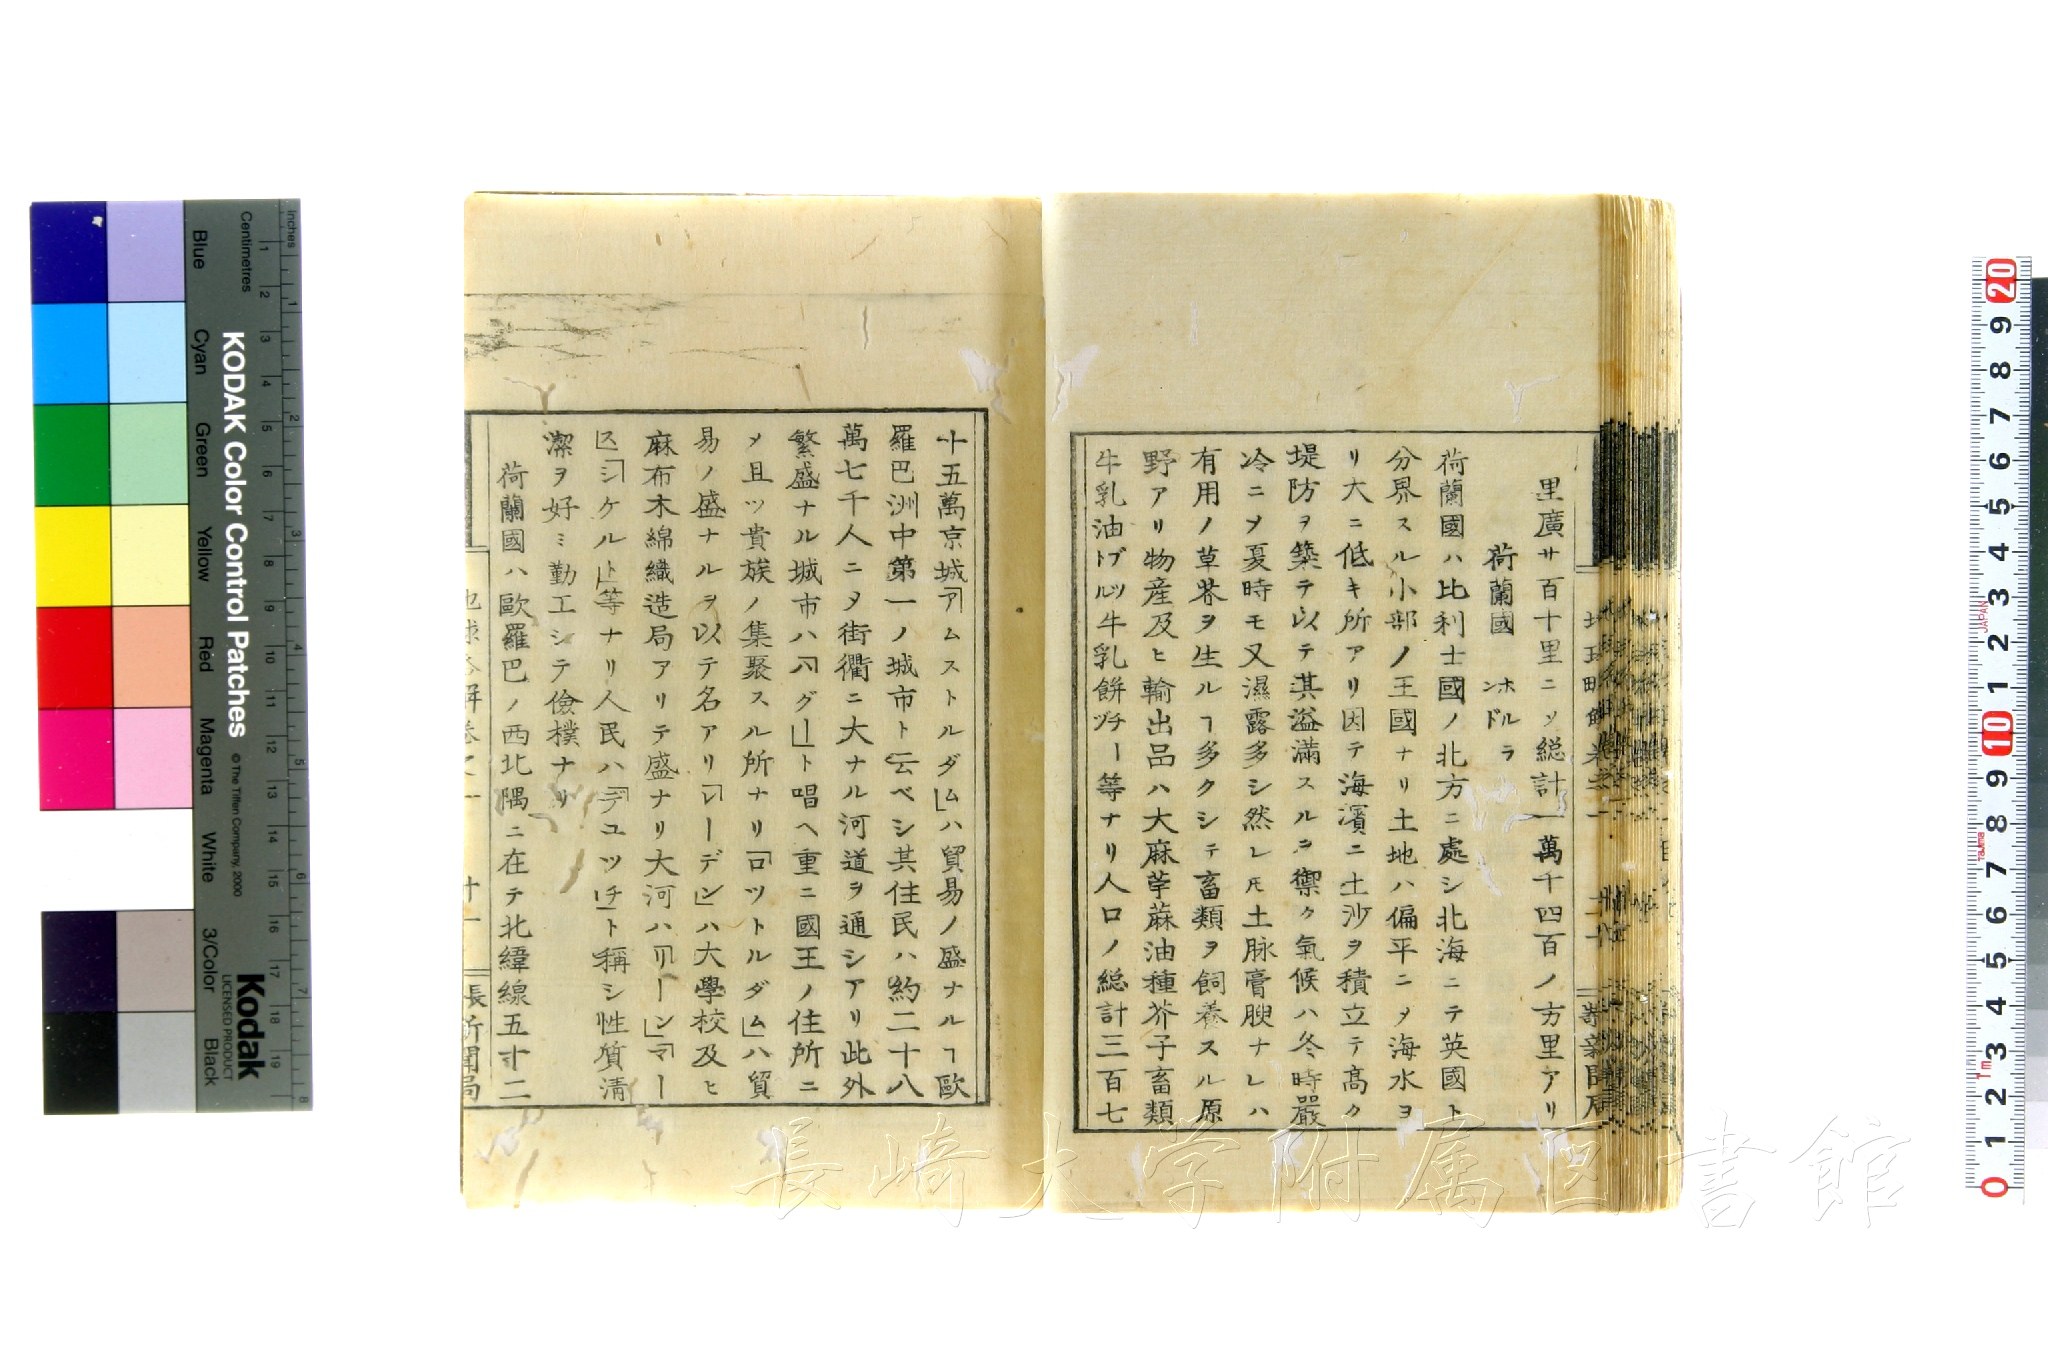 里廣サ百十里ニソ総計一萬千四百ノ方里アリ
荷蘭國 ホルランド
荷蘭國ハ比利士國ノ北方ニ處シ北海ニテ英國ト
分界スル小部ノ王國ナリ土地ハ偏平ニヲ海水ヨ
リ大ニ低キ所アリ因テ海濱ニ土沙ヲ積立テ髙ク
堤防ヲ築テ以テ淇溢満スルヿ禦ク氣候ハ冬時嚴
冷ニヲ夏時モ又濕露多シ然レ𪜈土脉膏腴ナレハ
有用ノ草芥ヲ生ルヿ多クシテ畜類ヲ飼養スル原
野アリ物産及ヒ輸出品ハ大麻苧蔴油種芥子畜類
牛乳油ブトル牛乳餅チーヅ等ナリ人口ノ総計三百七
十五萬京城「アムストルダム」ハ貿易ノ盛ナルヿ歐
羅巴洲中第一ノ城市ト云ベシ其住民ハ約二十八
萬七千人ニヲ街衢ニ大ナル河道ヲ通シアリ此外
繁盛ナル城市ハ「ハグ」ト唱ヘ重ニ國王ノ住所ニ
〆且ツ貴族ノ集聚スル所ナリ「ロツトルダム」ハ貿
易ノ盛ナルヲ以テ名アリ「レーデン」ハ大學校及ヒ
麻布木綿織造局アリテ盛ナリ大河ハ「リーン」「マー
ス」「シケルト」等ナリ人民ハ「デユツチ」ト稱シ性質清
潔ヲ好ミ勤工シテ儉樸ナリ
荷蘭國ハ歐羅巴ノ西北隅ニ在テ北緯線五十二
長新聞局
長崎大学附属図書館
KODAK Color Control Patches
© The Tiffen Company, 2000
Kodak
LICENSED PRODUCT
Inches
Centimetres
Blue
Cyan
Green
Yellow
Red
Magenta
White
3/Color
Black